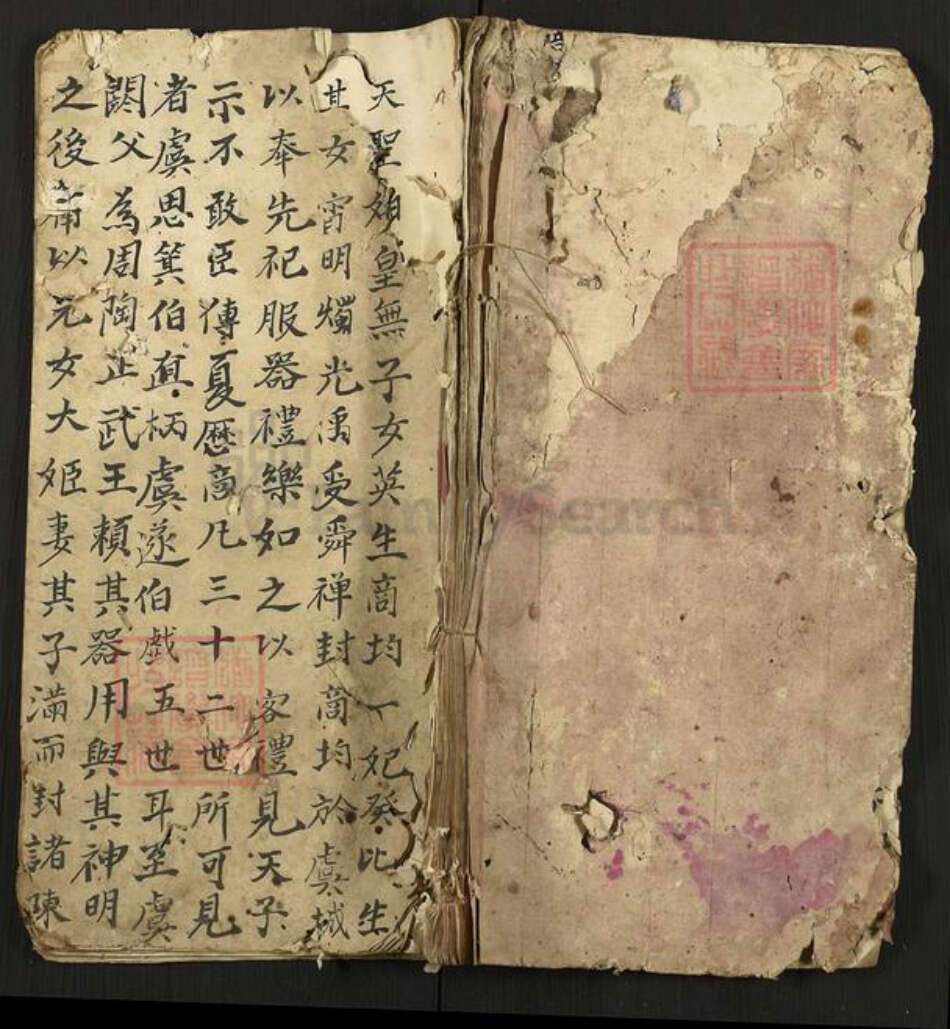 天聖娥皇無子女英生商均一妃癸比生
其女宵明燭光禹受舜禅封商均於虞城
以奉先祀服器禮樂如之以客禮見天子
示不敢臣傳夏歷商凢三十二世所可見
者虞思箕伯直柄虞遂伯戲五世耳至虞
閼父為周陶正武王賴其器用與其神明
之後庸以元女大姬妻其子滿而封諸陳